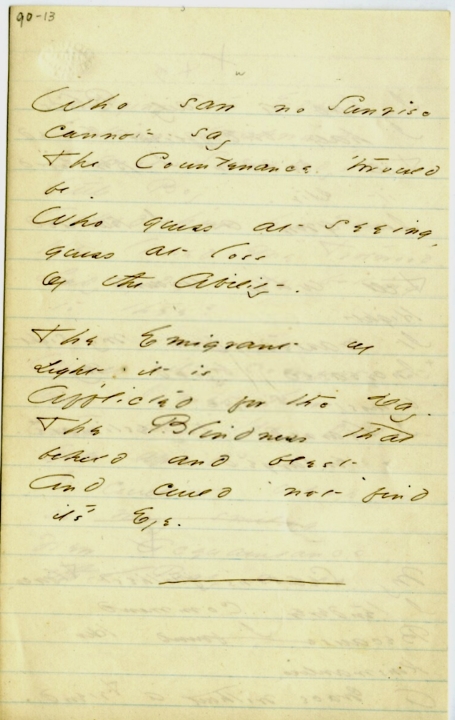 90-13
Who saw no Sunrise
cannot say
The Countenance 'twould
be -
Who guess at seeing,
guess at loss
Of the Ability -.
The Emigrant of
Light it is
Afflicted for the Day.
The Blindness that
beheld and blest -
And could not find
it's Eye.